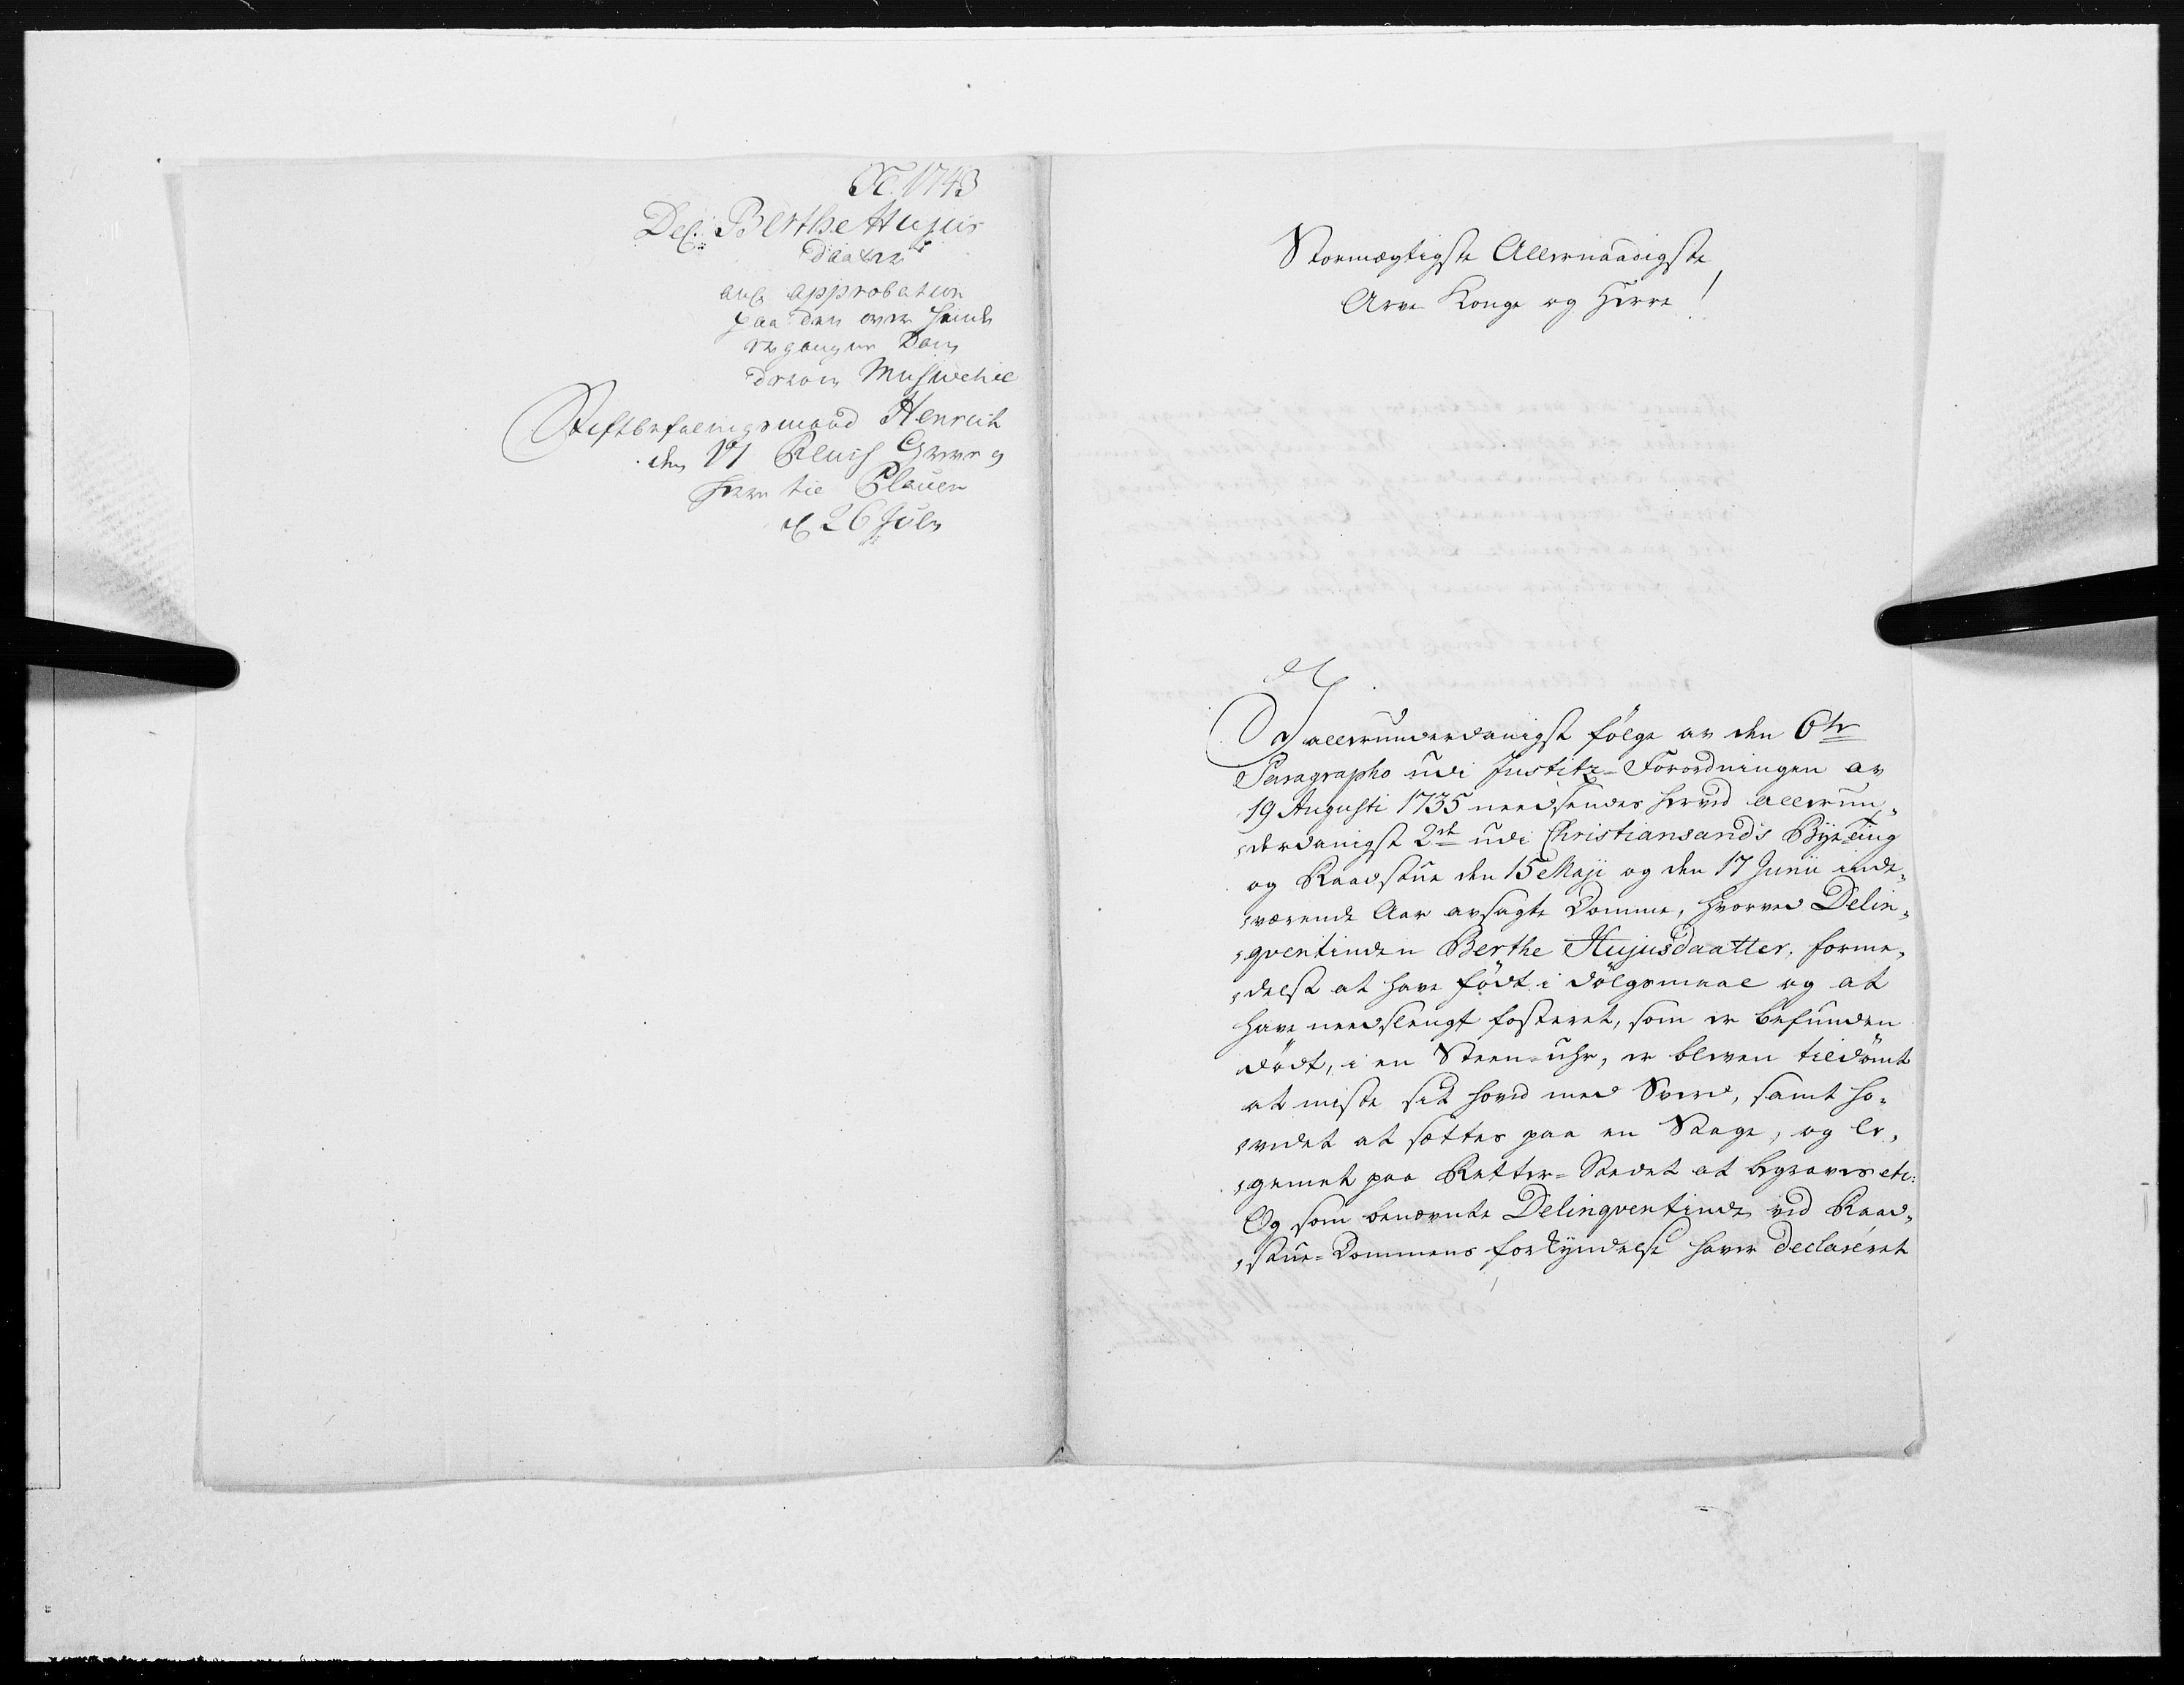 1743
Del: Berthe Hujus
daatter
ang approbation
paa den over hende
ergangne Dom
derom
Stiftbefalingsmand Henrich
den VI Reuss Greve og
Herre til Plauen
d 26 July
Stormægtigste Allernaadigste
Arve Konge og Herre!
I allerunderdanigst følge av den 6te
Paragrapho udi Justitz-Forordningen av
19 Augusti 1735 needsendes herved allerun-
derdanigst 2de udi Christiansands Bye Ting
og Raadstue den 15 Maji og den 17 Junii inde-
værende Aar avsagte Domme, hvorved Delin-
qventinden Berthe Hujusdaatter, forme-
delst at have født i dølgsmaal og at
have needslengt fosteret, som er befunden
dødt, i en Steen-uhr, er bleven tildømt
at miste sit hoved med Sverd, samt ho-
vedet at sættes paa en Stage, og le-
gemet paa Retter-Stedet at begraves etc:
Og som benævnte Delinqventinde ved Raad-
stue-Dommens forkyndelse haver declareret